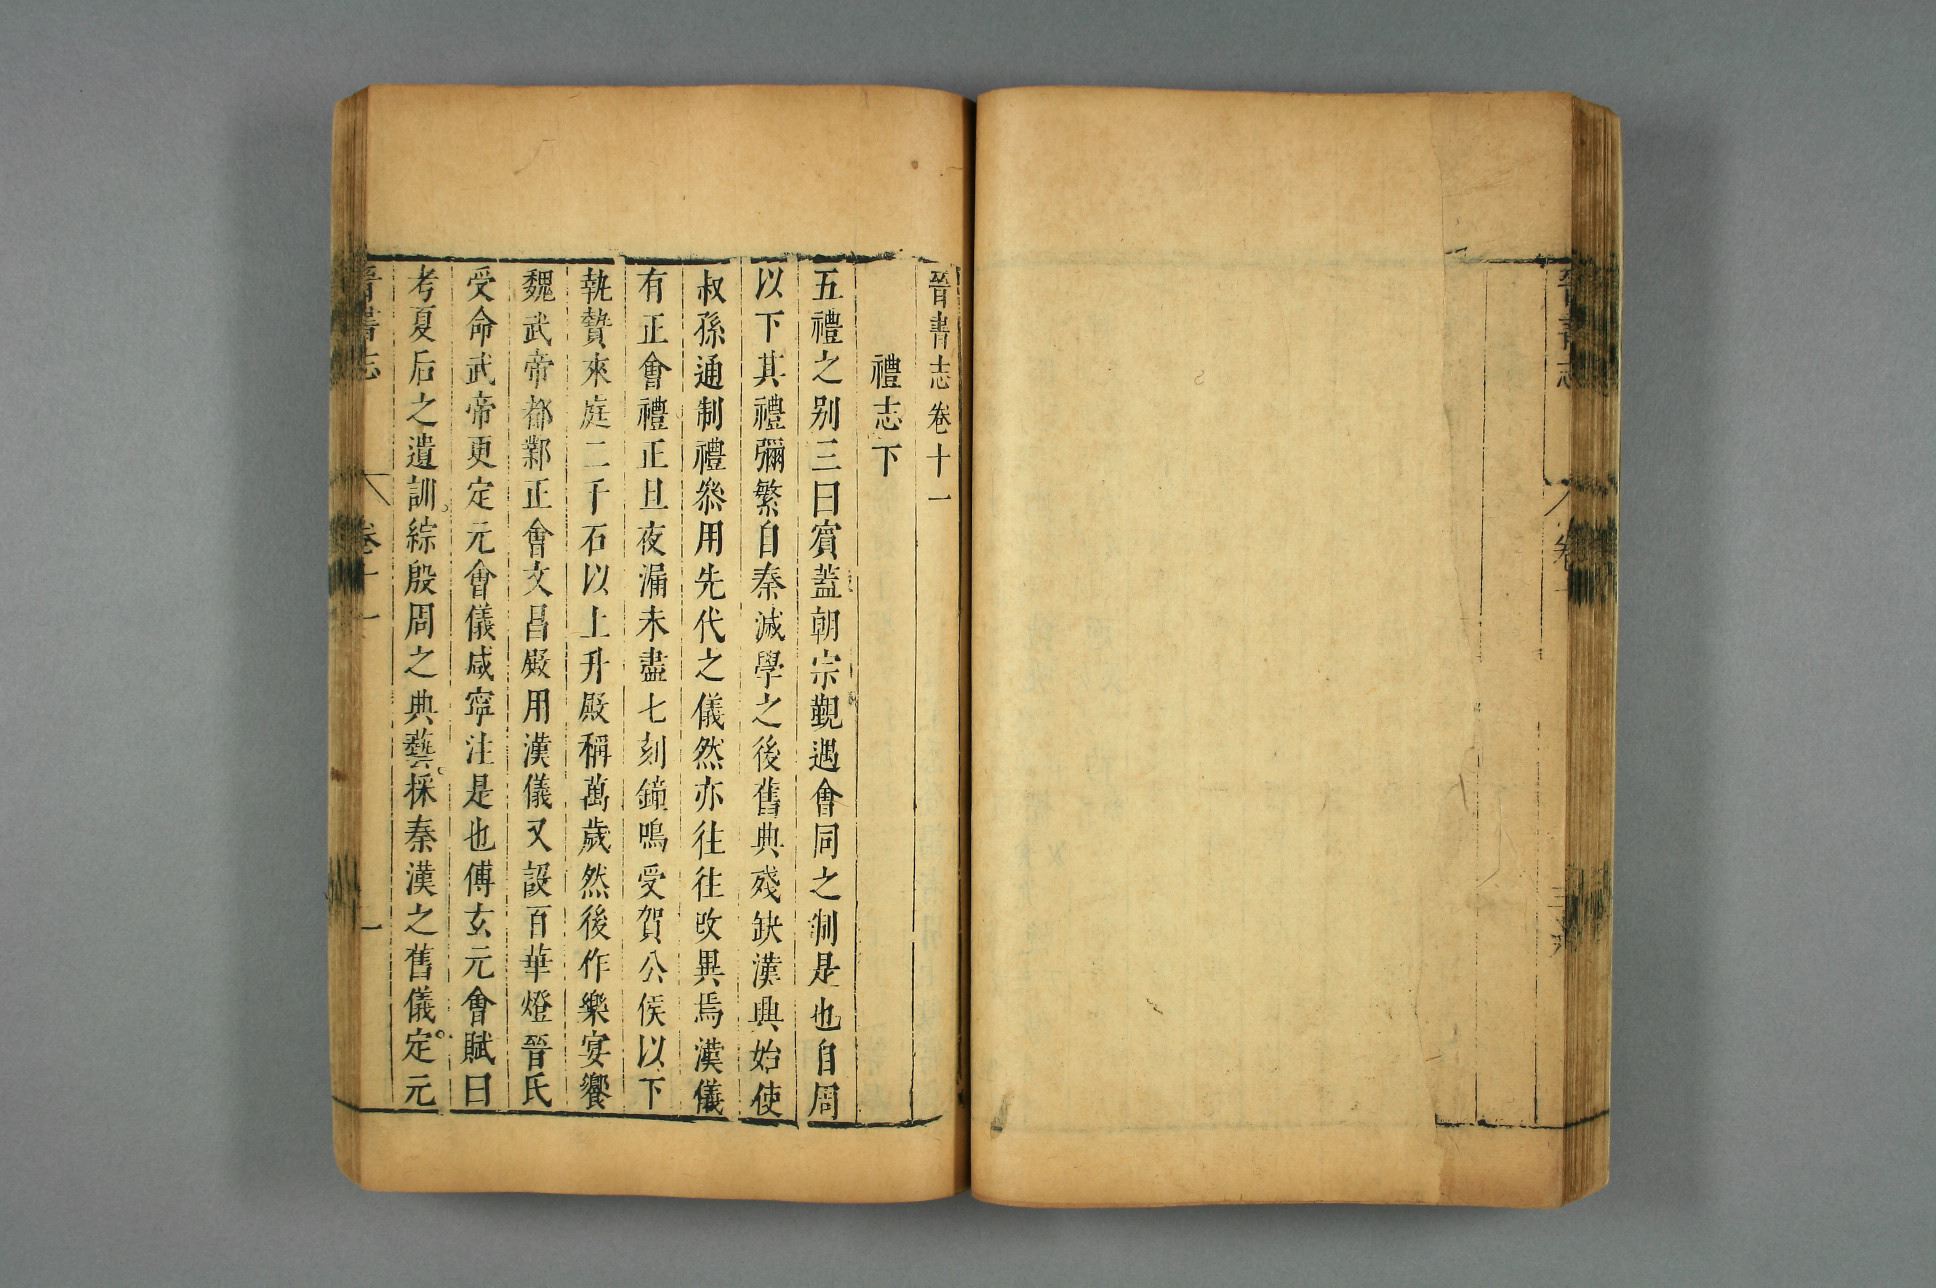 晉書志
卷十
晉書志卷十一
禮志下
五禮之别三曰賓蓋朝宗覲遇會同之制是也自周
以下其禮彌繁自秦滅學之後舊典殘缺漢興始使
叔孫通制禮叅用先代之儀然亦往往改異焉漢儀
有正會禮正旦夜漏未盡七刻鐘鳴受賀公侯以下
執贄來庭二千石以上升殿稱萬歲然後作樂宴饗
魏武帝都鄴正會文昌殿用漢儀又設百華燈晉氏
受命武帝更定元會儀咸寧注是也傅玄元會賦曰
考夏后之遺訓。綜殷周之典藝。採秦漢之舊儀。定元
晉書志
卷十一
一